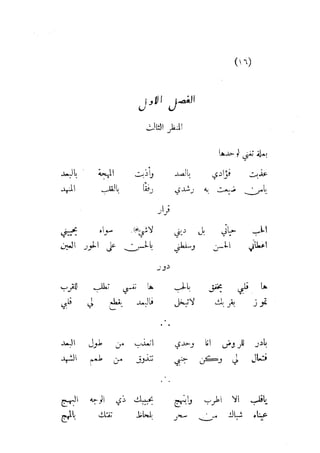 (١٦)
الفصل الاول
المنظر الثالث
بعلة تغني لوحدها
عذبت فؤادي بالصد وأذبت المهجة بالبعد
يامن ضيعت به رشدي رفقا بالقلب المنهد
قرار
الحب حياتي بل ديني لاشيء سواه يحييني
اعطاني الحسن وسلطني بالحسن على الحور العين
دور
ها قلبي يخفق بالحب ها نفسي تطلب للقرب
تموز بقربك لاتبخل فالبعد يقطع لي قلبي
بادر للروض انا وحدي اتعذب من طول البعد
فتعال لي وكن جنبي تتذوق من طعم الشهد
ياقلب ألا اطرب وابتهج بحبيبك ذي الوجه البهج
عيناه شباك من سحر بلحاظ تفتك بالمهج